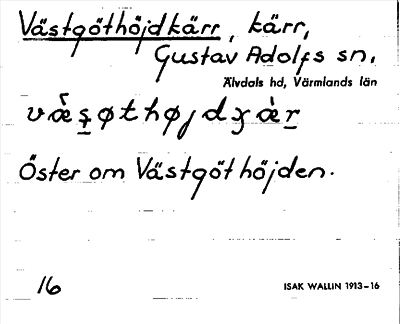 Västgöthöjdkärr, kärr,
Gustav Adolfs sn.
Älvdals hd, Värmlands län
væ̀s̠øthøjdχæ̀r̠
Öster om Västgöthöjden.
16
ISAK WALLIN 1913-16